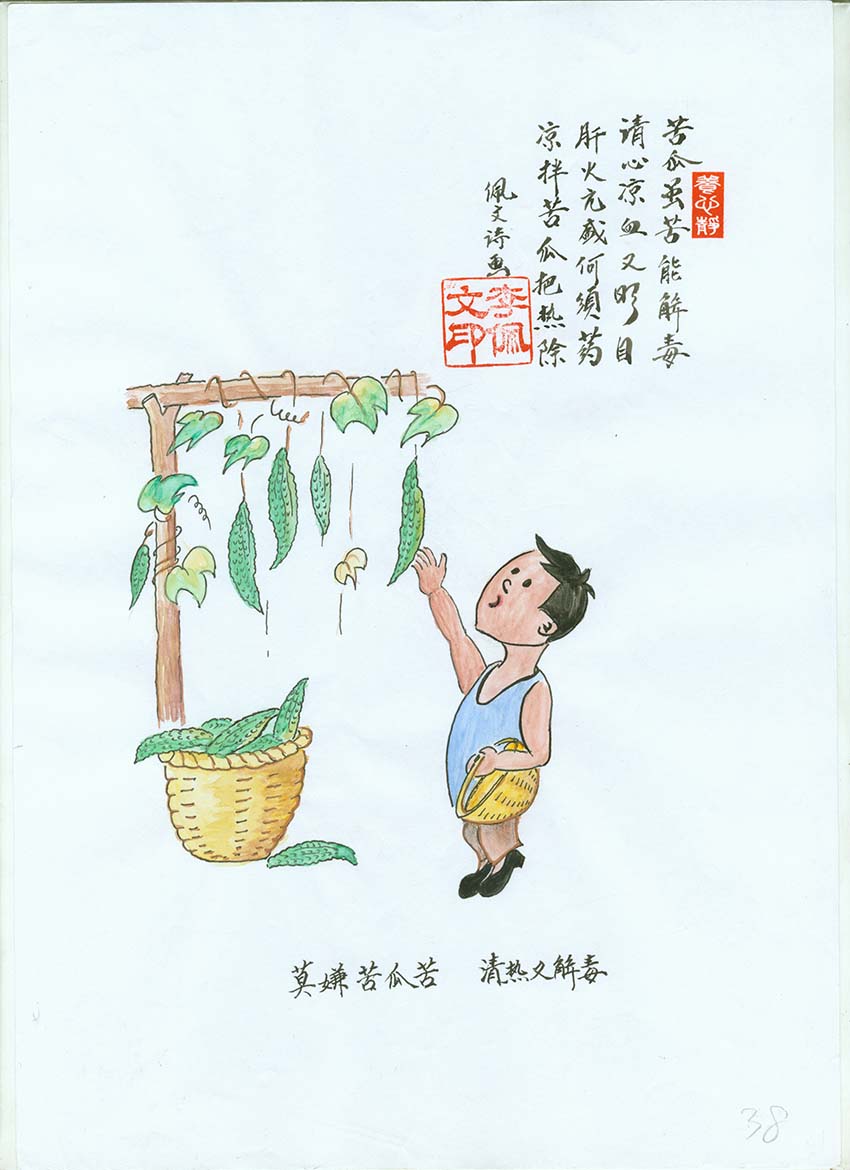 苦瓜虽苦能解毒
清心凉血又明目
肝火亢盛何须药
凉拌苦瓜把热除
佩文诗画
养心静
李佩文印
莫嫌苦瓜苦 清热又解毒
38